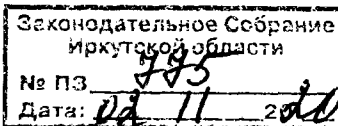 Законодательное Собрание
Иркутской области
№ ПЗ 775
Дата: 02 11 2020